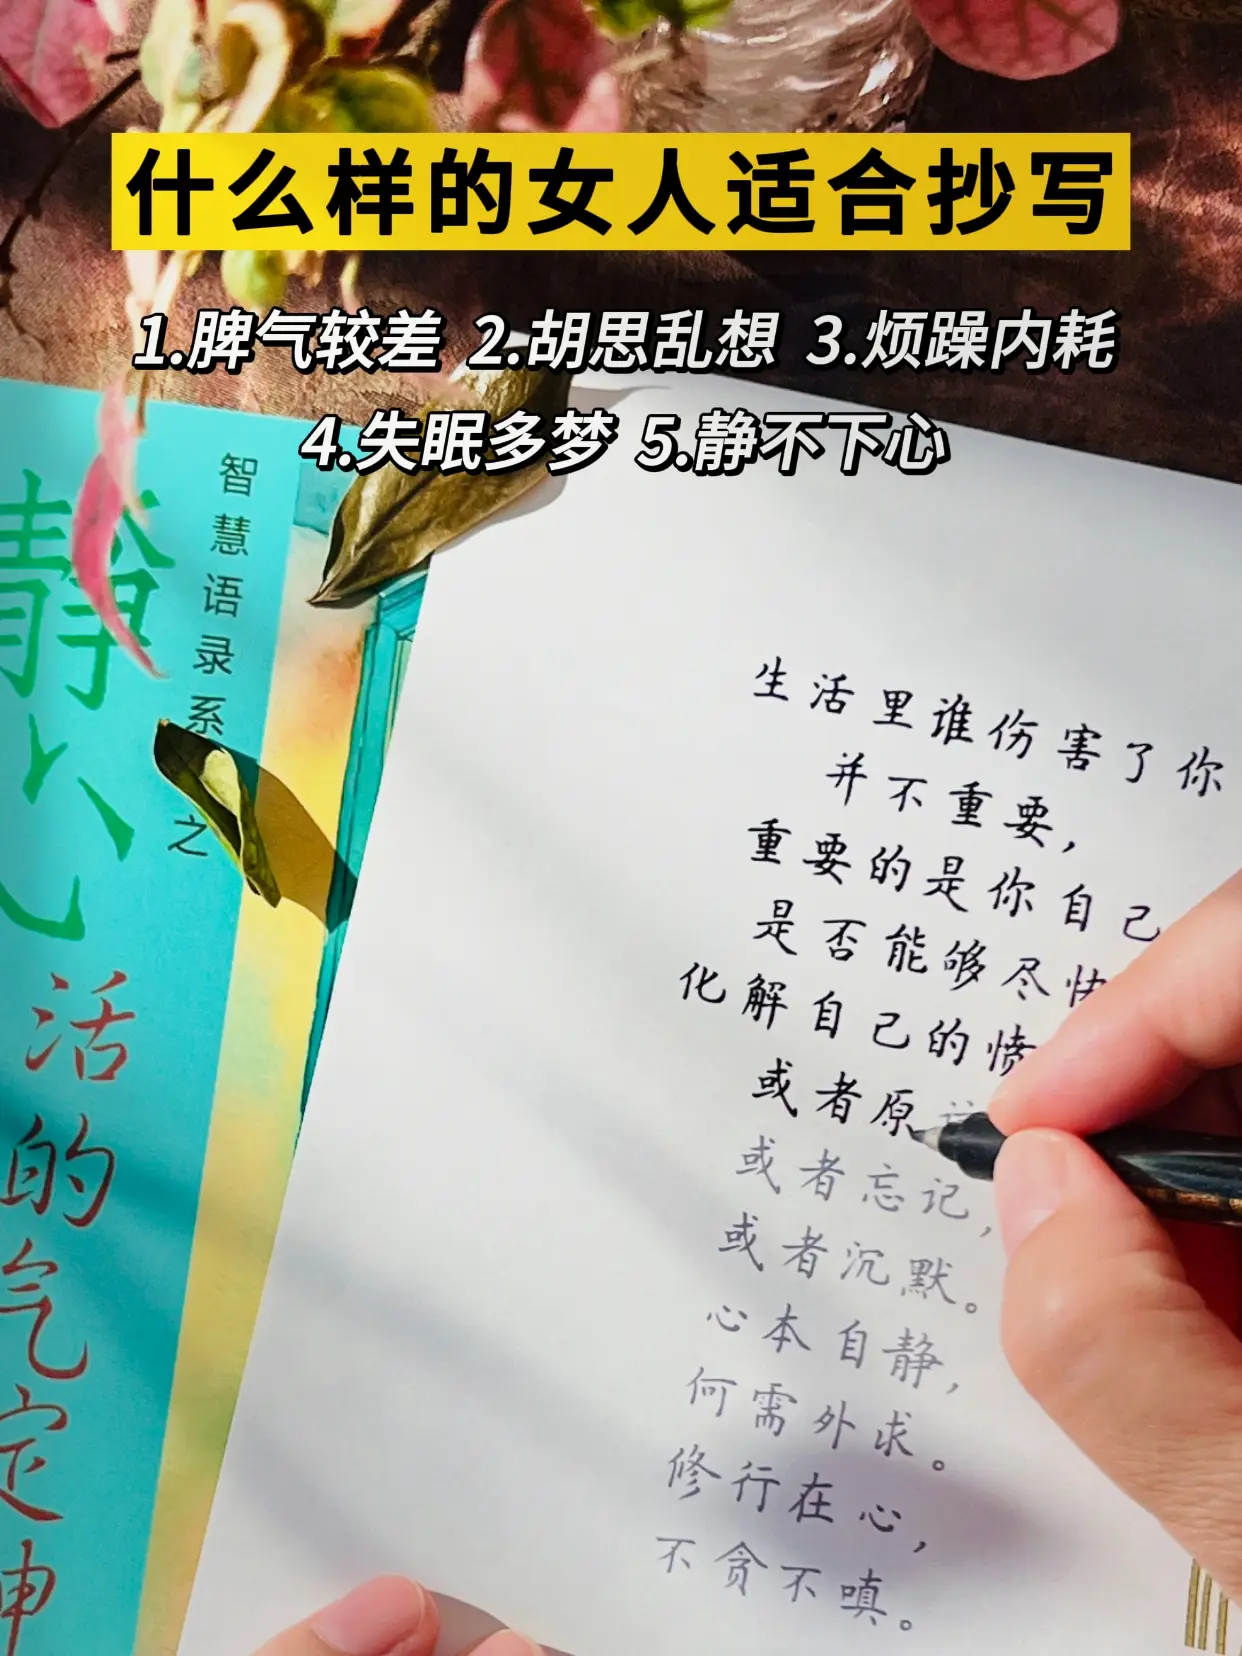 什么样的女人适合抄写
1.脾气较差 2.胡思乱想 3.烦躁内耗
4.失眠多梦 5.静不下心
智慧语录系
之
静心
活的气定神
生活里谁伤害了你
并不重要,
重要的是你自己
是否能够尽快
化解自己的愤
或者原
或者忘记,
或者沉默。
心本自静,
何需外求。
修行在心,
不贪不嗔。